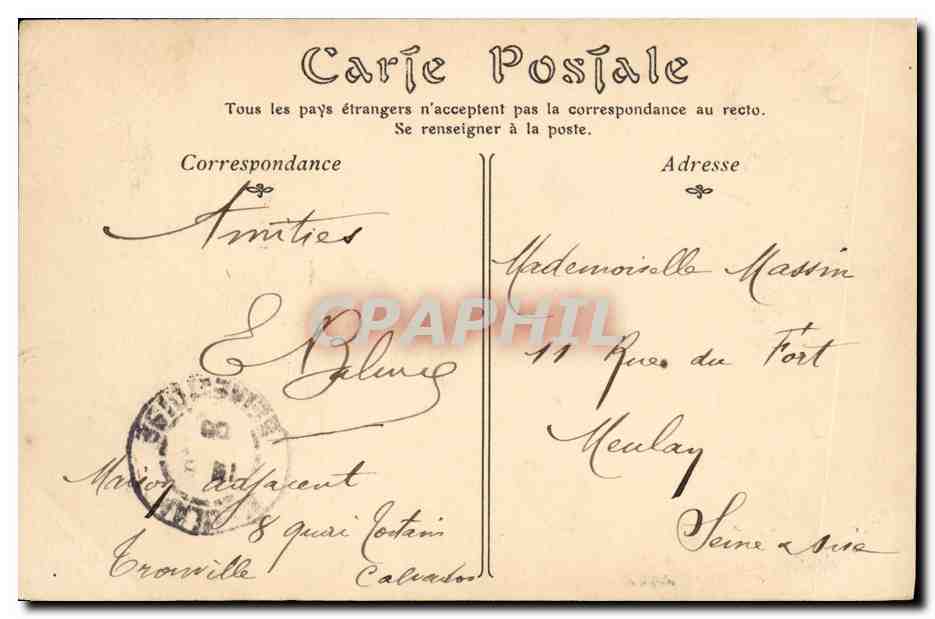 Carte Postale
Tous les pays étrangers n'acceptent pas la correspondance au recto.
Se renseigner à la poste.
Correspondance
Adresse
Amitiés
E
Maison adjacent
8 quai Tostain
Trouville Calvados
Mademoiselle Massin
11 Rue du Fort
Meulan
Seine & Oise
CPAPHIL